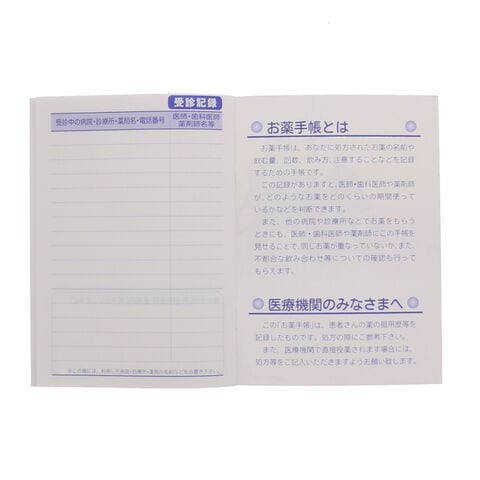 受診記録
受診中の病院・診療所・薬局名・電話番号
医師・歯科医師
薬剤師名等
※この欄には、利用した病院・診療所・薬局の名前などをお書き下さい。
お薬手帳とは
お薬手帳は、あなたに処方されたお薬の名前や
飲む量、回数、飲み方、注意することなどを記録
するための手帳です。
この記録がありますと、医師・歯科医師や薬剤師
が、どのようなお薬をどのくらいの期間使って
いるかなどを判断できます。
また、他の病院や診療所などでお薬をもらう
ときにも、医師・歯科医師や薬剤師にこの手帳を
見せることで、同じお薬が重なっていないか、また、
不都合な飲み合わせ等についての確認も行って
もらえます。
医療機関のみなさまへ
この「お薬手帳」は、患者さんの薬の服用歴等を
記録したものです。処方の際にご参考下さい。
また、医療機関で直接投薬されます場合には、
処方等をご記入いただきますようお願い致します。